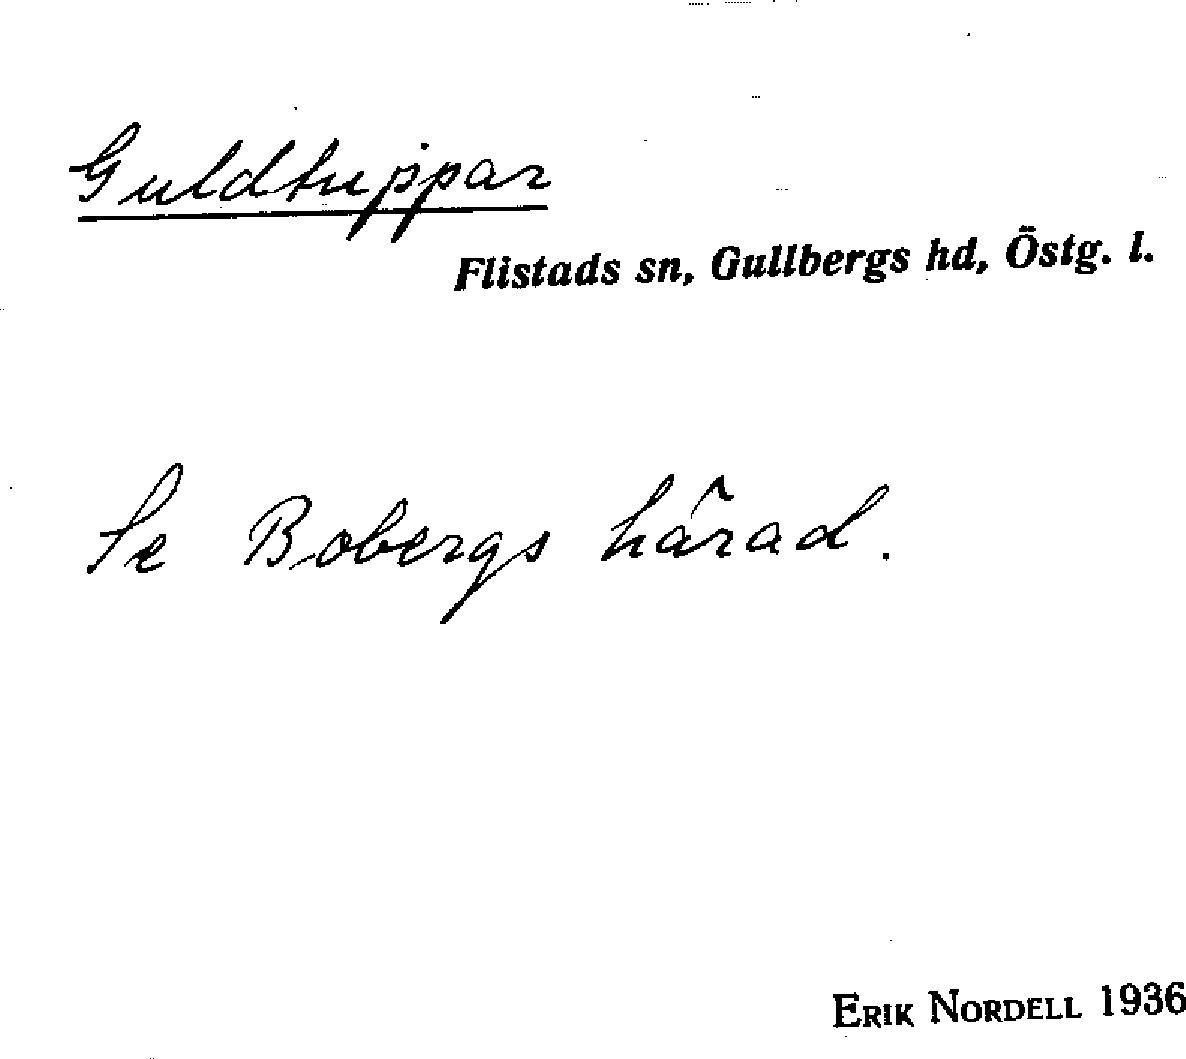 Guldtuppar
Flistads sn, Gullbergs hd, Östg. l.
Se Bobergs härad.
ERIK NORDELL 1936